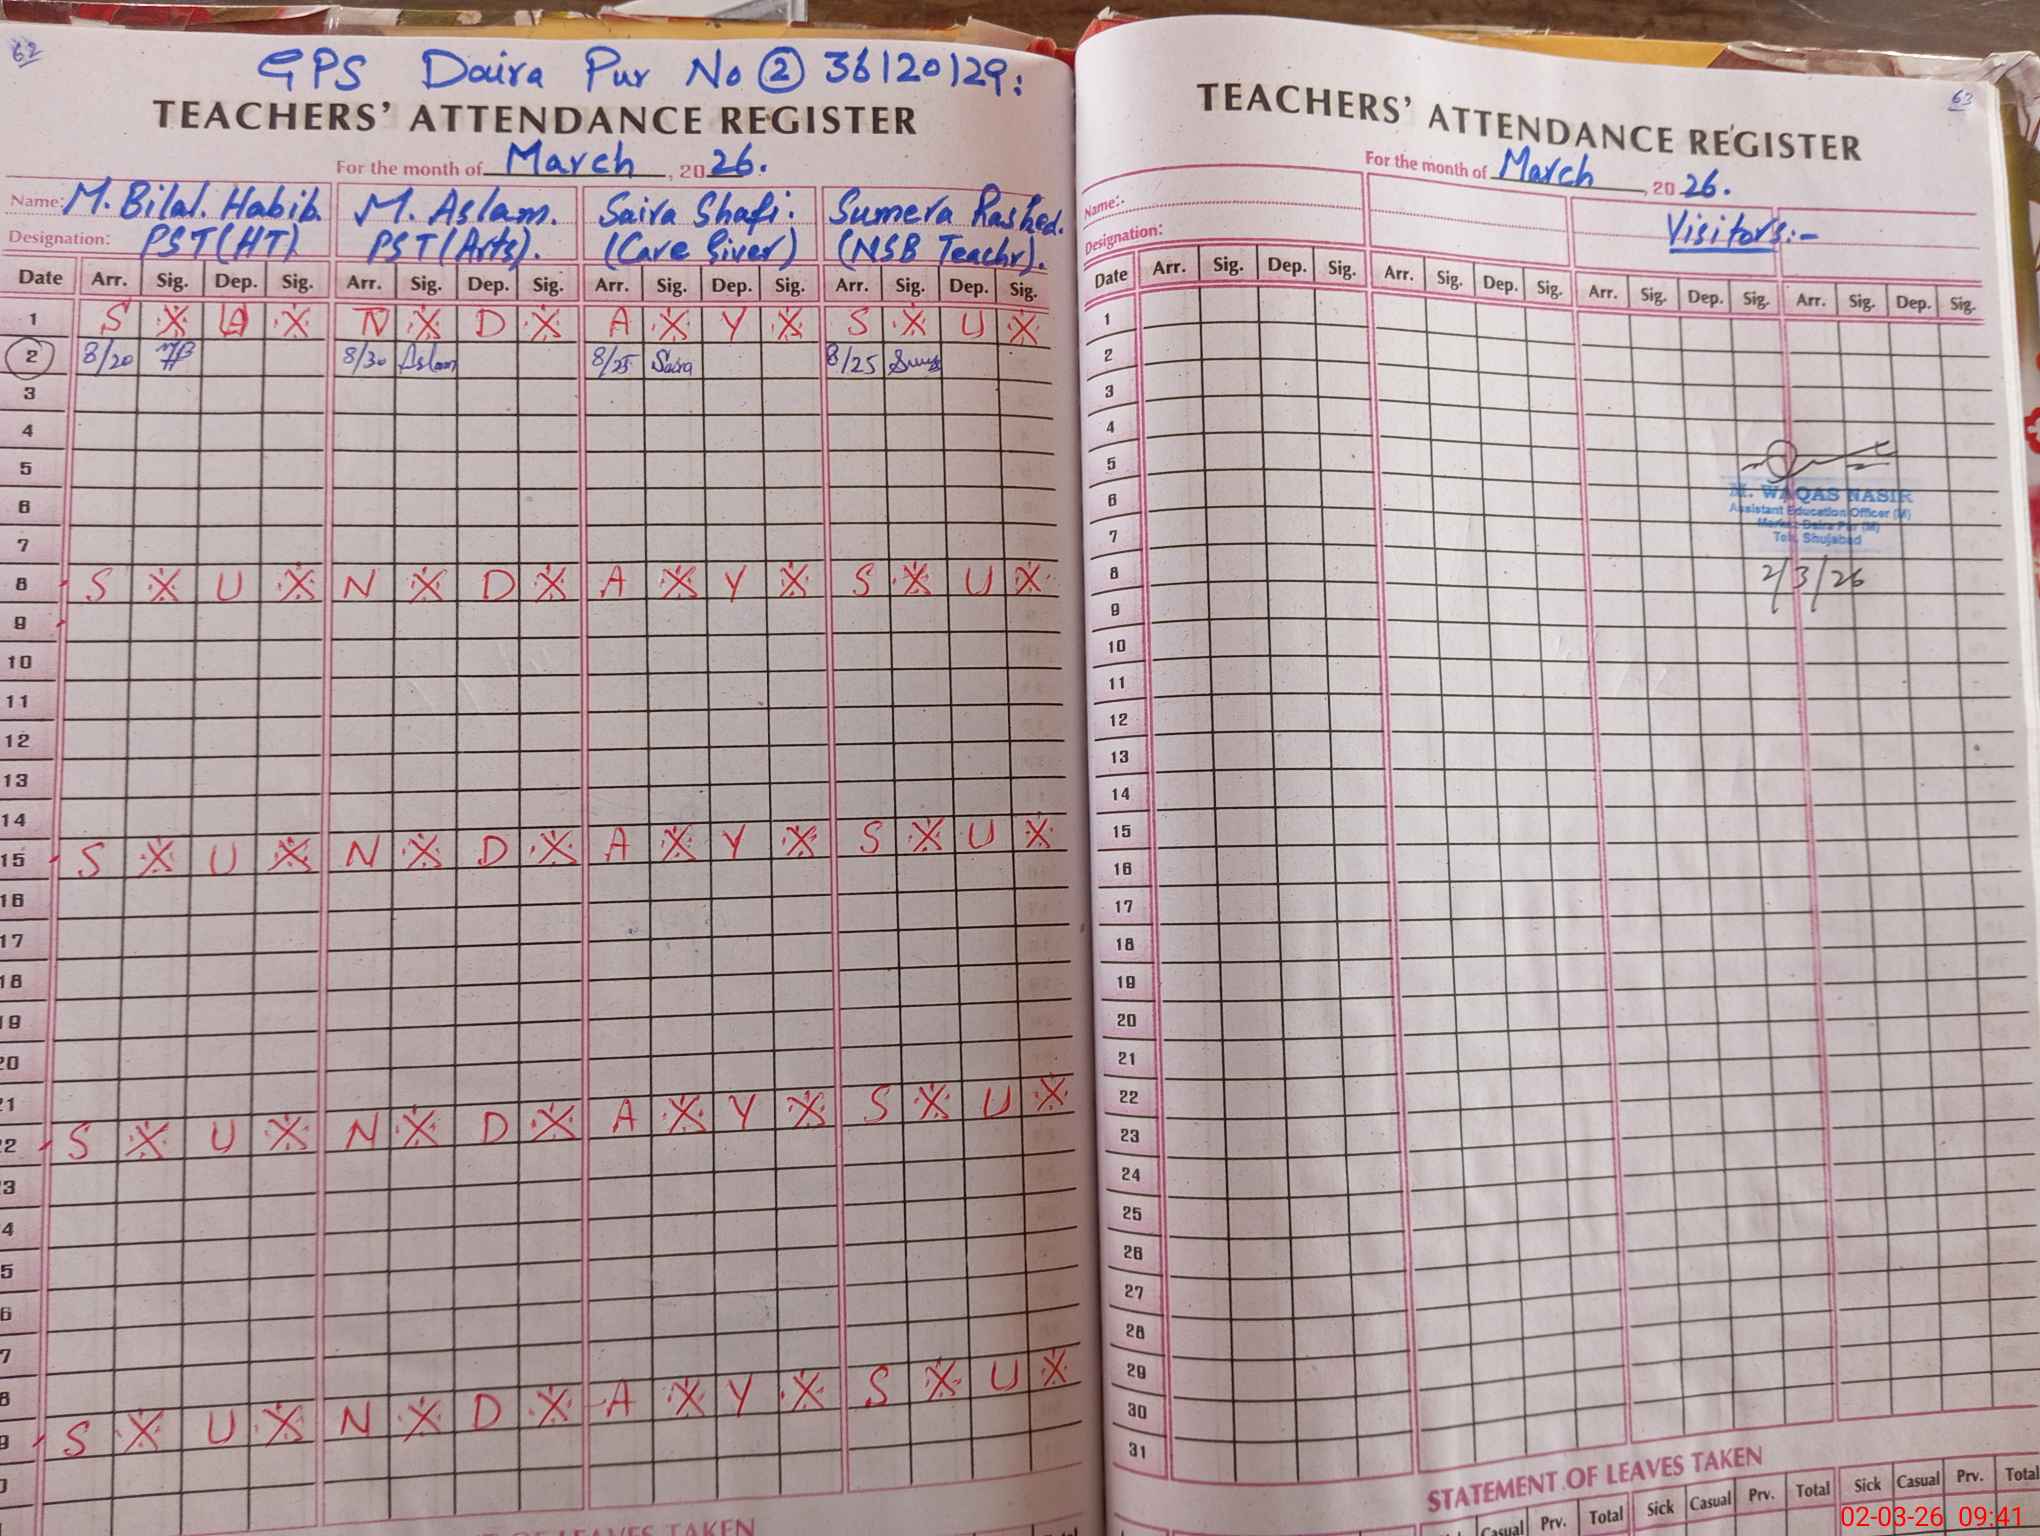 62
GPS Daira Pur No 2 36120129:
TEACHERS' ATTENDANCE REGISTER
For the month of March, 2026.
Name: M. Bilal. Habib. M. Aslam. Saira Shafi. Sumera Rashed.
Designation: PST(HT) PST(Arts). (Care Giver) (NSB Teachr).
Date Arr. Sig. Dep. Sig. Arr. Sig. Dep. Sig. Arr. Sig. Dep. Sig. Arr. Sig. Dep. Sig.
1 S U N D A Y S U
2 8/20 8/30 Aslam 8/25 Saira 8/25
3
4
5
6
7
8 S U N D A Y S U
9
10
11
12
13
14
15 S U N D A Y S U
16
17
18
19
20
21
22 S U N D A Y S U
3
4
5
6
7
8
9 S U N D A Y S U
OF LEAVES TAKEN
63
TEACHERS' ATTENDANCE REGISTER
For the month of March, 2026.
Name:-
Designation: Visitors:-
Date Arr. Sig. Dep. Sig. Arr. Sig. Dep. Sig. Arr. Sig. Dep. Sig. Arr. Sig. Dep. Sig.
1
2
3
4
5
6
7
8
9
10
11
12
13
14
15
16
17
18
19
20
21
22
23
24
25
26
27
28
29
30
31
M. WAQAS NASIR
Assistant Education Officer (M)
Markaz Daira Pur (M)
Teh. Shujabad
2/3/26
STATEMENT OF LEAVES TAKEN
Casual Prv. Total Sick Casual Prv. Total Sick Casual Prv. Total
02-03-26 09:41